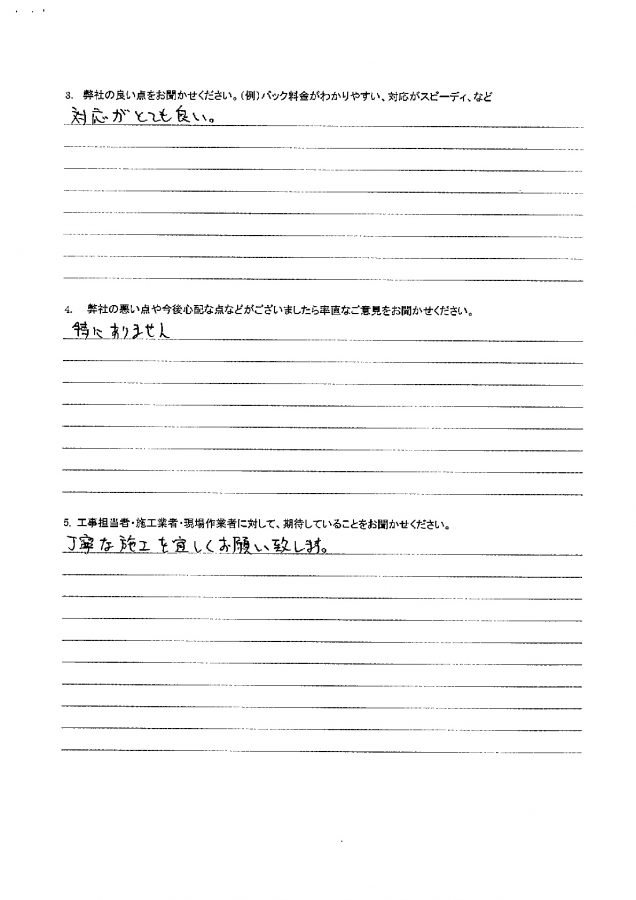 3. 弊社の良い点をお聞かせください。(例)パック料金がわかりやすい、対応がスピーディ、など
対応がとても良い。
4. 弊社の悪い点や今後心配な点などがございましたら率直なご意見をお聞かせください。
特にありません
5. 工事担当者・施工業者・現場作業者に対して、期待していることをお聞かせください。
丁寧な施工を宜しくお願い致します。